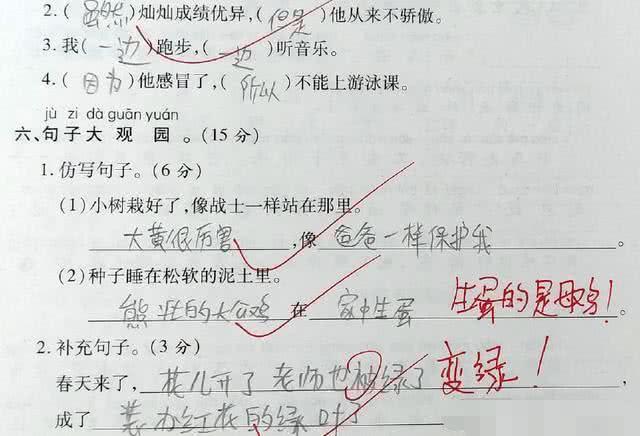 2.(虽然)灿灿成绩优异,(但是)他从来不骄傲。
3.我(一边)跑步,(一边)听音乐。
4.(因为)他感冒了,(所以)不能上游泳课。
jù zi dà guān yuán
六、句子大观园。(15分)
1.仿写句子。(6分)
(1)小树栽好了,像战士一样站在那里。
大黄很厉害,像爸爸一样保护我
(2)种子睡在松软的泥土里。
熊壮的大公鸡在家中生蛋。生蛋的是母鸡!
2.补充句子。(3分)
春天来了,花儿开了老师也被绿了 变绿!
成了装办红花的绿叶了